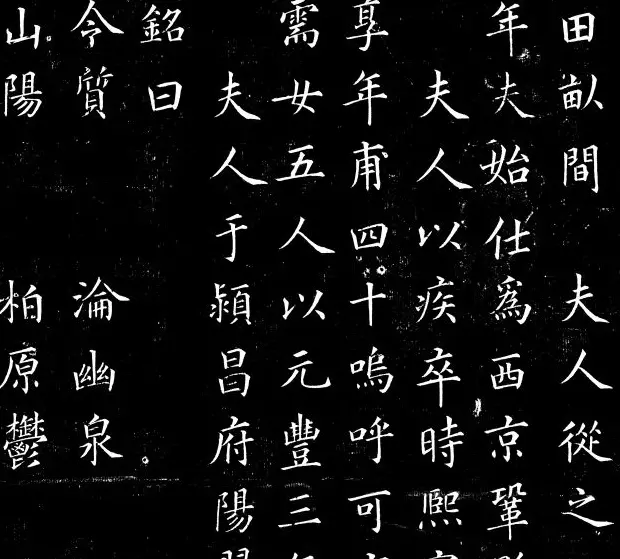 田畝間 夫人從之
年夫始仕爲西京鞏
夫人以疾卒時熙
享年甫四十嗚呼可
需女五人以元豐三
夫人于潁昌府陽
銘曰
令質 淪幽泉
山陽 柏原鬱